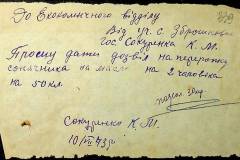 До Економічного відділу
Від гр. с. Зброшков
гос. Сокуренко К. М.
Прошу дати дозвіл на переробку
сонячника на масло на 2 человіка
на 50 кіл.
Сокуренко К. М.
10/VII 43р